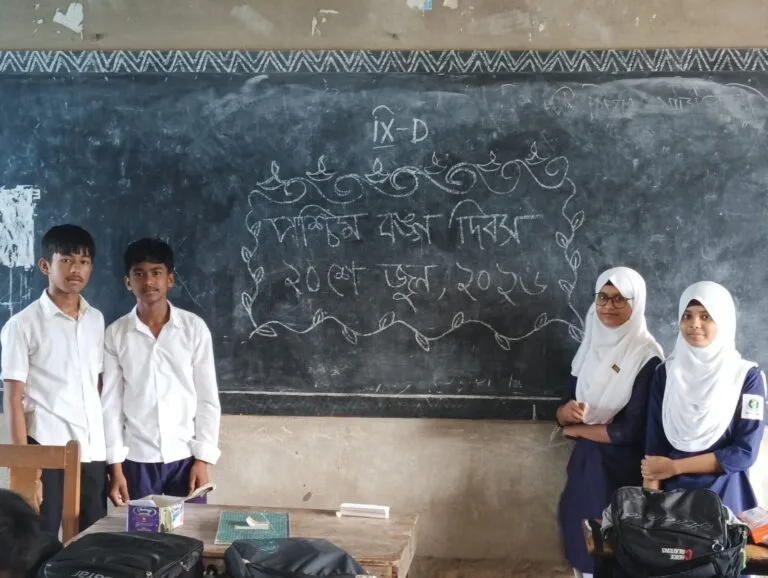 IX-D
পশ্চিম বঙ্গ দিবস
২০ শে জুন, ২০২৬